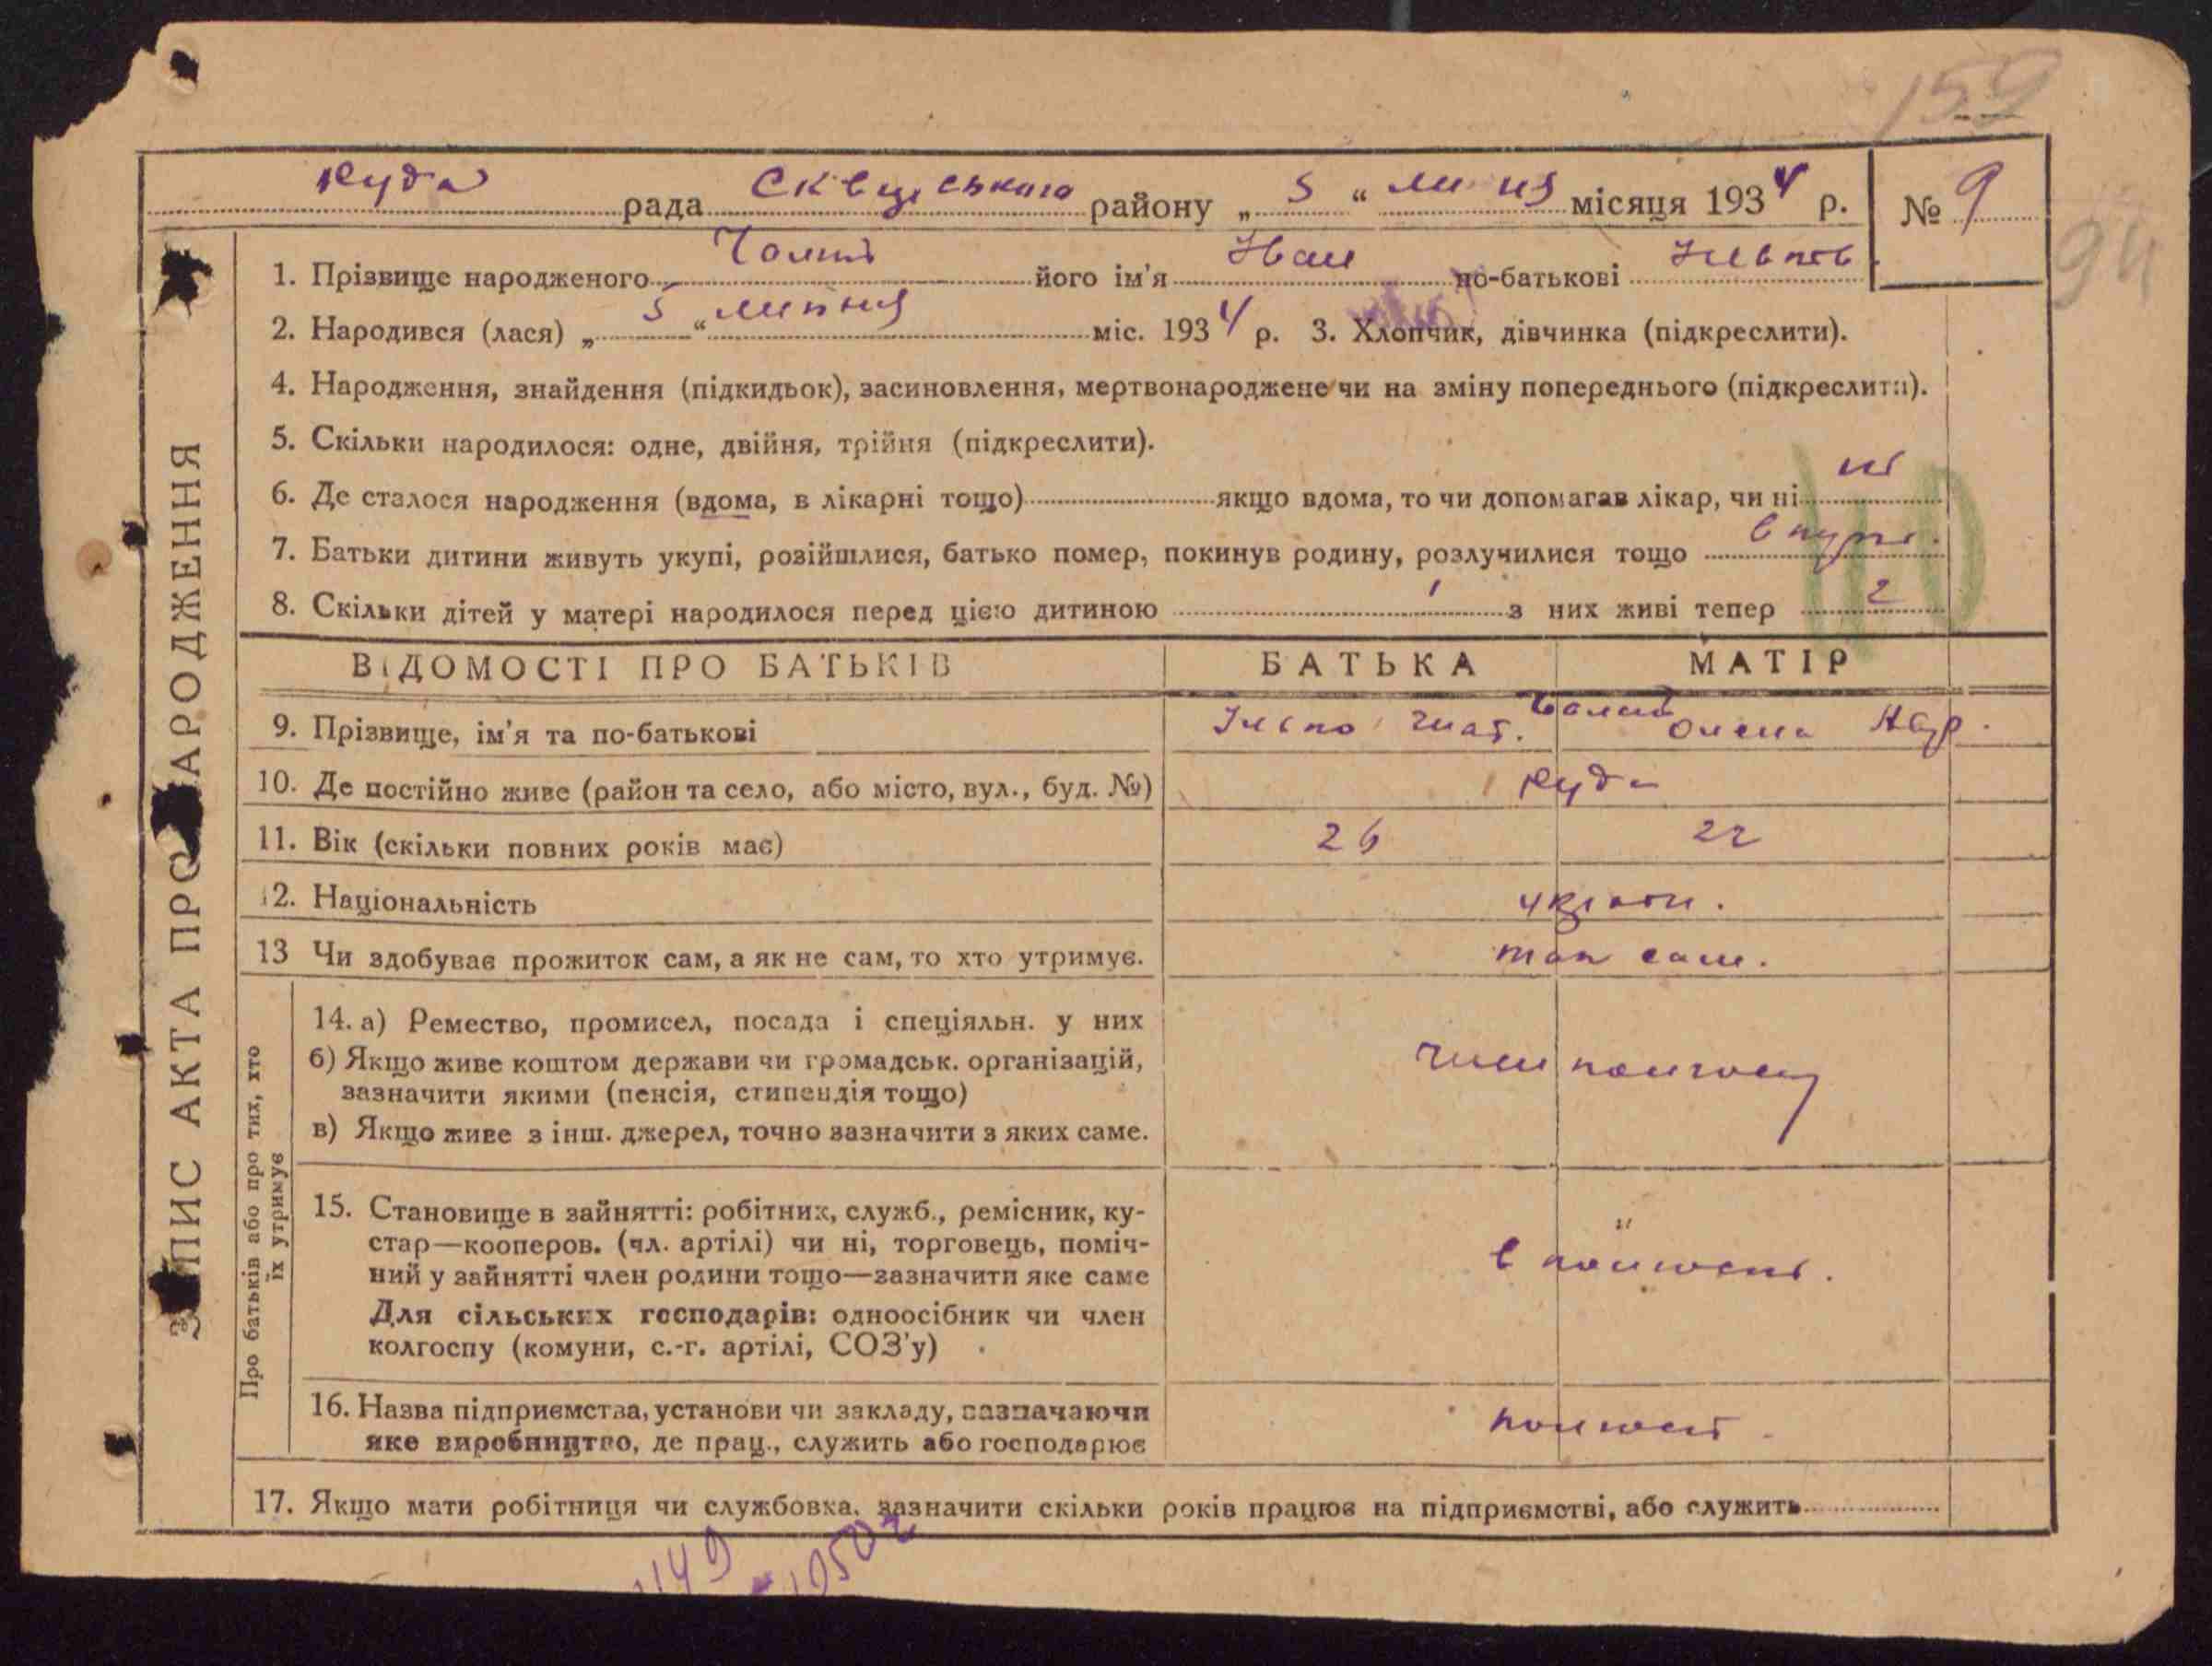 159
Руда рада Сквирського району „ 5 “ липня місяця 1934 р. № 9
94
1. Прізвище народженого його ім'я Іван по-батькові
2. Народився (лася) „ 5 “ липня міс. 1934 р. 3. Хлопчик, дівчинка (підкреслити).
4. Народження, знайдення (підкидьок), засиновлення, мертвонароджене чи на зміну попереднього (підкреслити).
5. Скільки народилося: одне, двійня, трійня (підкреслити).
6. Де сталося народження (вдома, в лікарні тощо) якщо вдома, то чи допомагав лікар, чи ні ні
7. Батьки дитини живуть укупі, розійшлися, батько помер, покинув родину, розлучилися тощо вкупі.
8. Скільки дітей у матері народилося перед цією дитиною 1 з них живі тепер 2
ЗАПИС АКТА ПРО НАРОДЖЕННЯ
ВІДОМОСТІ ПРО БАТЬКІВ БАТЬКА МАТІР
9. Прізвище, ім'я та по-батькові Ілько Гнат. Олена
10. Де постійно живе (район та село, або місто, вул., буд. №) Руда
11. Вік (скільки повних років має) 26 22
12. Національність україн.
13 Чи здобуває прожиток сам, а як не сам, то хто утримує. так сам.
Про батьків або про тих, хто
їх утримує
14. а) Ремество, промисел, посада і спеціяльн. у них
б) Якщо живе коштом держави чи громадськ. організацій,
зазначити якими (пенсія, стипендія тощо)
член колгоспу
в) Якщо живе з інш. джерел, точно зазначити з яких саме.
15. Становище в зайнятті: робітник, служб., ремісник, ку-
стар—кооперов. (чл. артілі) чи ні, торговець, поміч-
ний у зайнятті член родини тощо—зазначити яке саме
в колгоспі.
Для сільських господарів: одноосібник чи член
колгоспу (комуни, с.-г. артілі, СОЗ'у)
16. Назва підприємства, установи чи закладу, зазначаючи
яке виробництво, де прац., служить або господарює
колгосп.
17. Якщо мати робітниця чи службовка, зазначити скільки років працює на підприємстві, або служить